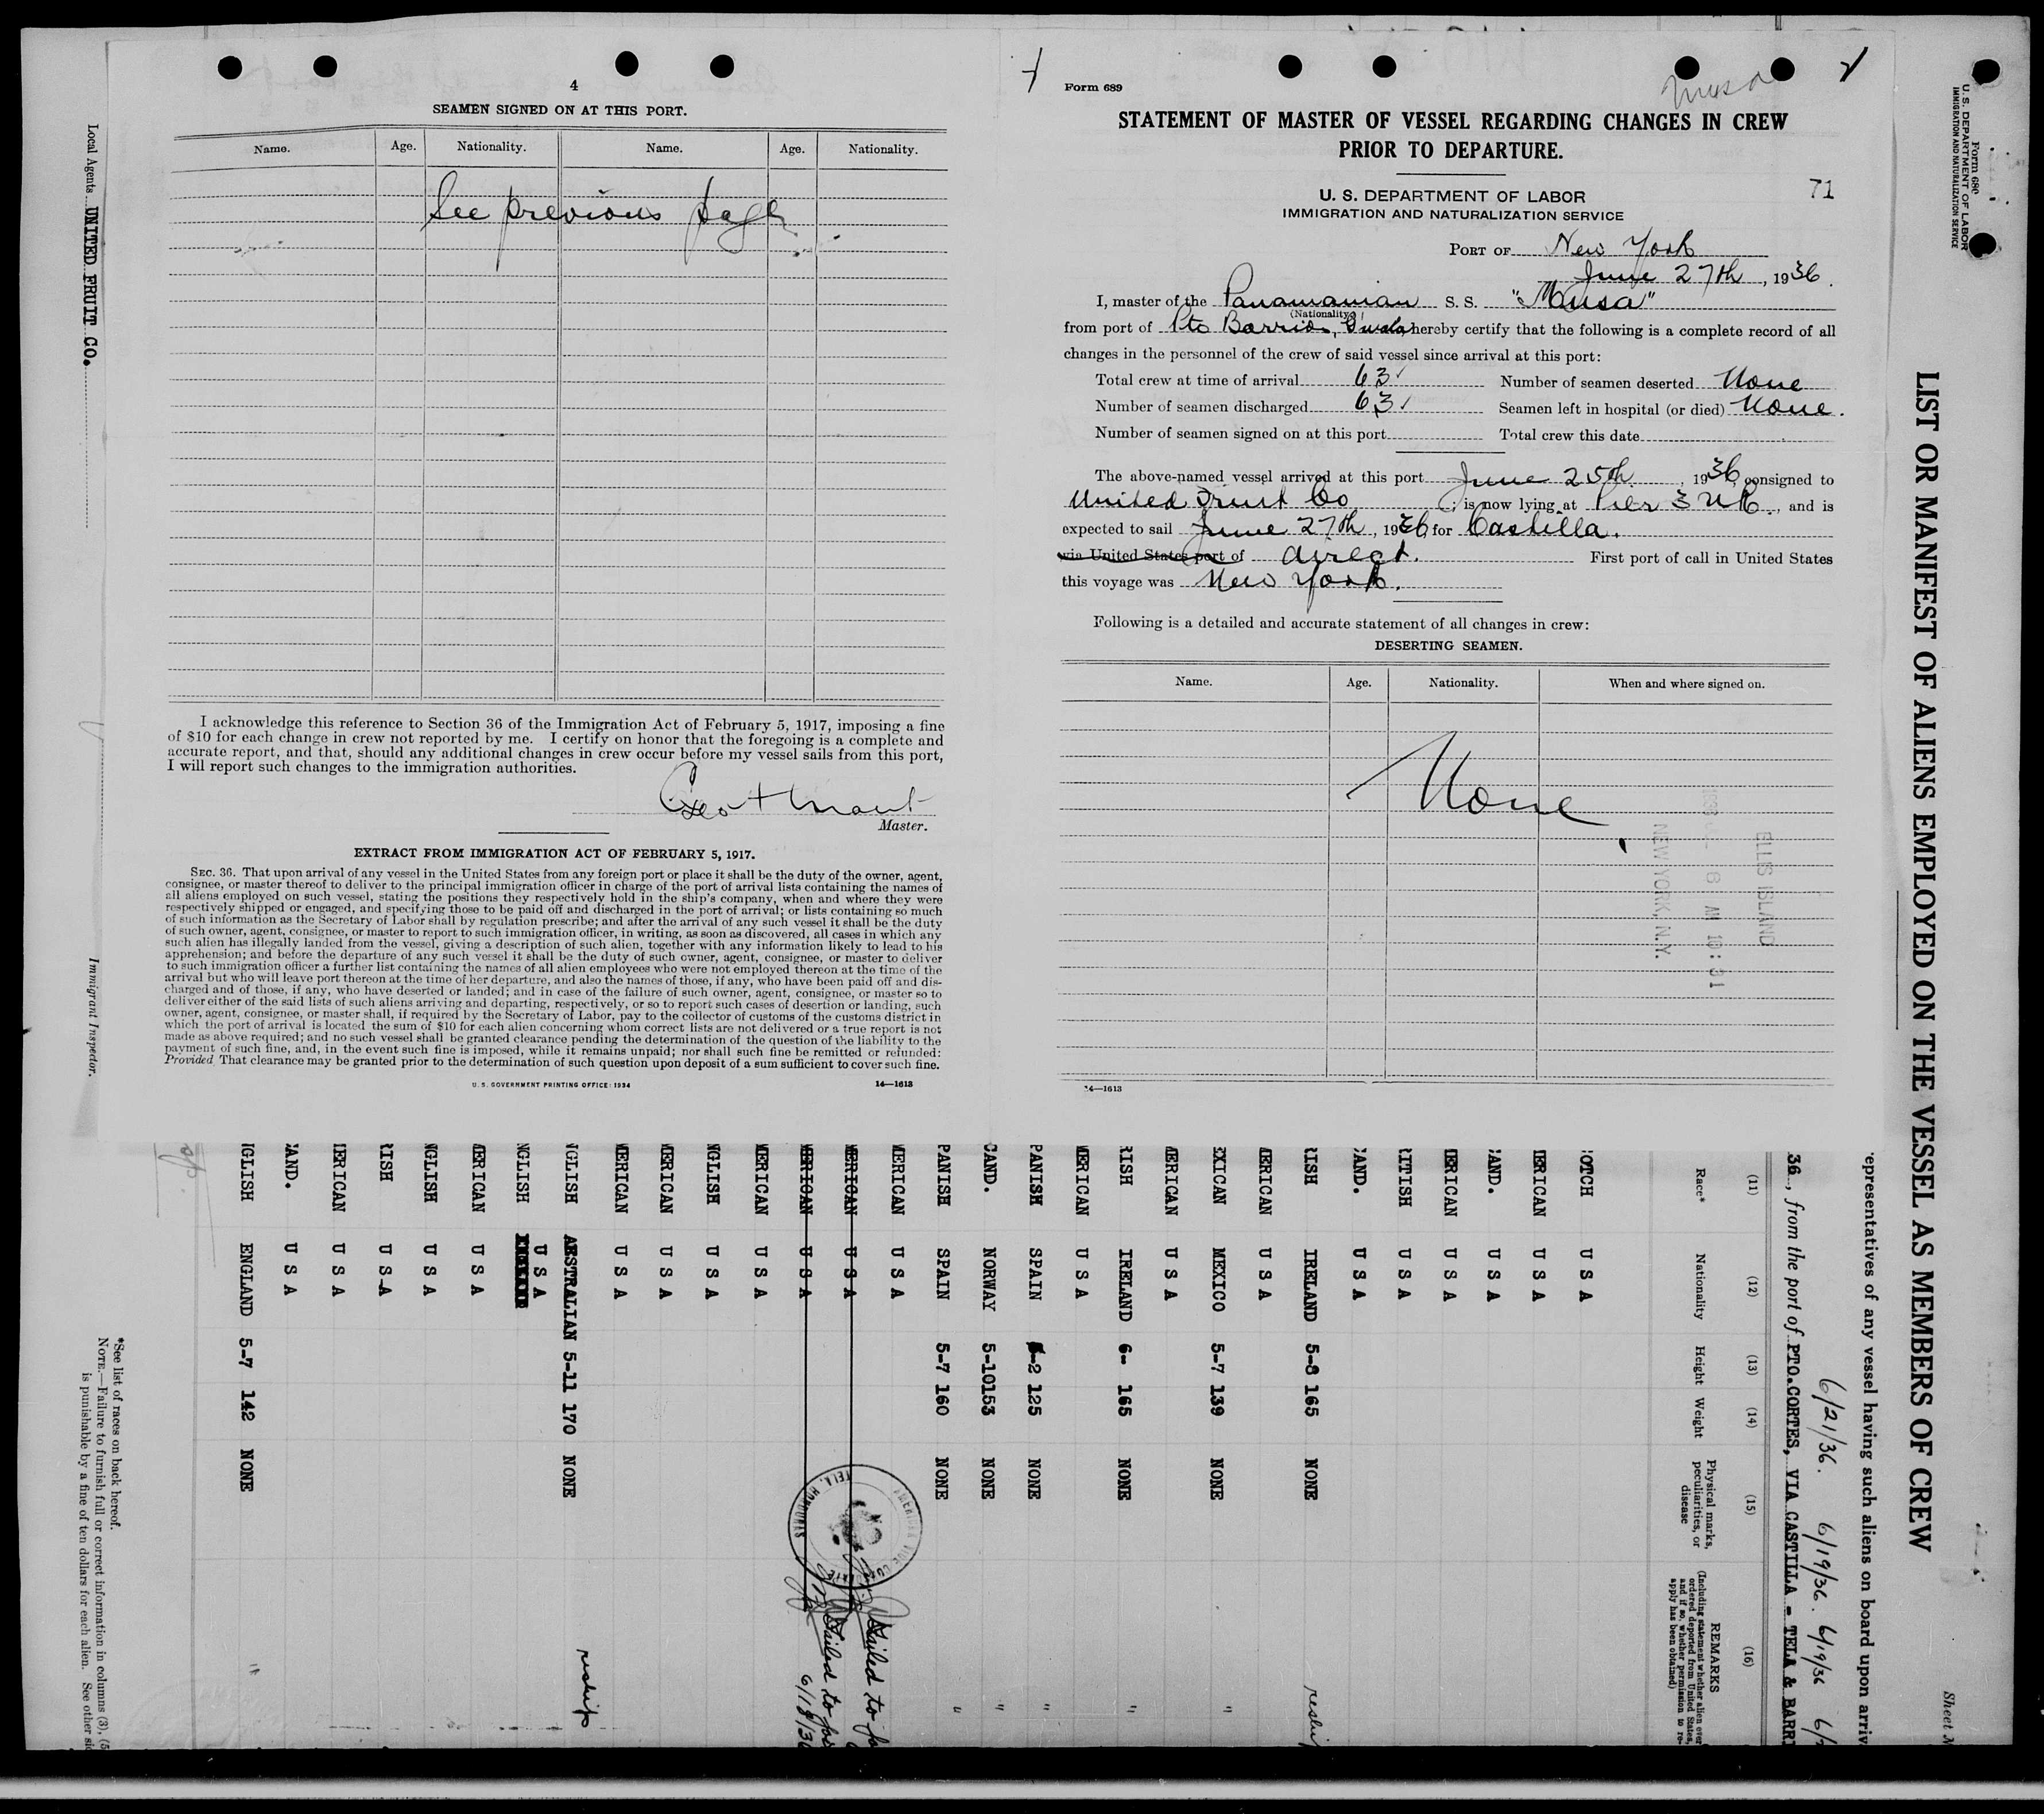 4
SEAMEN SIGNED ON AT THIS PORT.
Name. Age. Nationality. Name. Age. Nationality.
See previous page
I acknowledge this reference to Section 36 of the Immigration Act of February 5, 1917, imposing a fine
of $10 for each change in crew not reported by me. I certify on honor that the foregoing is a complete and
accurate report, and that, should any additional changes in crew occur before my vessel sails from this port,
I will report such changes to the immigration authorities.
Master.
EXTRACT FROM IMMIGRATION ACT OF FEBRUARY 5, 1917.
SEC. 36. That upon arrival of any vessel in the United States from any foreign port or place it shall be the duty of the owner, agent,
consignee, or master thereof to deliver to the principal immigration officer in charge of the port of arrival lists containing the names of
all aliens employed on such vessel, stating the positions they respectively hold in the ship's company, when and where they were
respectively shipped or engaged, and specifying those to be paid off and discharged in the port of arrival; or lists containing so much
of such information as the Secretary of Labor shall by regulation prescribe; and after the arrival of any such vessel it shall be the duty
of such owner, agent, consignee, or master to report to such immigration officer, in writing, as soon as discovered, all cases in which any
such alien has illegally landed from the vessel, giving a description of such alien, together with any information likely to lead to his
apprehension; and before the departure of any such vessel it shall be the duty of such owner, agent, consignee, or master to deliver
to such immigration officer a further list containing the names of all alien employees who were not employed thereon at the time of the
arrival but who will leave port thereon at the time of her departure, and also the names of those, if any, who have been paid off and dis-
charged and of those, if any, who have deserted or landed; and in case of the failure of such owner, agent, consignee, or master so to
deliver either of the said lists of such aliens arriving and departing, respectively, or so to report such cases of desertion or landing, such
owner, agent, consignee, or master shall, if required by the Secretary of Labor, pay to the collector of customs of the customs district in
which the port of arrival is located the sum of $10 for each alien concerning whom correct lists are not delivered or a true report is not
made as above required; and no such vessel shall be granted clearance pending the determination of the question of the liability to the
payment of such fine, and, in the event such fine is imposed, while it remains unpaid; nor shall such fine be remitted or refunded:
Provided, That clearance may be granted prior to the determination of such question upon deposit of a sum sufficient to cover such fine.
U. S. GOVERNMENT PRINTING OFFICE: 1934 14—1613
Form 689
Musa
STATEMENT OF MASTER OF VESSEL REGARDING CHANGES IN CREW
PRIOR TO DEPARTURE.
U. S. DEPARTMENT OF LABOR
IMMIGRATION AND NATURALIZATION SERVICE
71
PORT OF New York
June 27th, 1936.
I, master of the Panamanian S. S. "Musa"
(Nationality)
from port of Pto Barrios, hereby certify that the following is a complete record of all
changes in the personnel of the crew of said vessel since arrival at this port:
Total crew at time of arrival 63 Number of seamen deserted None
Number of seamen discharged 63 Seamen left in hospital (or died) None.
Number of seamen signed on at this port Total crew this date
The above-named vessel arrived at this port June 25th, 1936, consigned to
United Fruit Co; is now lying at Pier 3 NR, and is
expected to sail June 27th, 1936, for Castilla.
via United States port of direct. First port of call in United States
this voyage was New York.
Following is a detailed and accurate statement of all changes in crew:
DESERTING SEAMEN.
Name. Age. Nationality. When and where signed on.
None
ELLIS ISLAND
AM 10:31
NEW YORK, N.Y.
14—1613
Form 680
U. S. DEPARTMENT OF LABOR
IMMIGRATION AND NATURALIZATION SERVICE
LIST OR MANIFEST OF ALIENS EMPLOYED ON THE VESSEL AS MEMBERS OF CREW
Sheet N
epresentatives of any vessel having such aliens on board upon arriv
6/21/36. 6/19/36. 6/19/36 6/
36, from the port of PTO.CORTES, VIA CASTILLA - TELA & BARRI
(11) (12) (13) (14) (15) (16)
Race* Nationality Height Weight Physical marks, peculiarities, or disease REMARKS
(Including statement whether alien ever ordered deported from United States, and if so, whether permission to re-apply has been obtained)
OTCH U S A
ERICAN U S A
AND. U S A
ERICAN U S A
RITISH U S A
AND. U S A
RISH IRELAND 5-8 165 NONE reship
ERICAN U S A
EXICAN MEXICO 5-7 139 NONE "
ERICAN U S A
RISH IRELAND 6- 165 NONE "
MERICAN U S A
PANISH SPAIN -2 125 NONE "
CAND. NORWAY 5-10 153 NONE "
PANISH SPAIN 5-7 160 NONE "
MERICAN U S A
MERICAN U S A Failed to jo
MERICAN U S A Failed to jo
6/19/36
AMERICAN VICE CONSULATE
TELA, HONDURAS
MERICAN U S A
NGLISH U S A
MERICAN U S A
MERICAN U S A
NGLISH AUSTRALIAN 5-11 170 NONE reship
NGLISH U S A
MERICAN U S A
NGLISH U S A
RISH U S A
MERICAN U S A
CAND. U S A
NGLISH ENGLAND 5-7 142 NONE "
*See list of races on back hereof.
NOTE.—Failure to furnish full or correct information in columns (3), (5
is punishable by a fine of ten dollars for each alien. See other si
Local Agents UNITED FRUIT CO.
Immigrant Inspector.